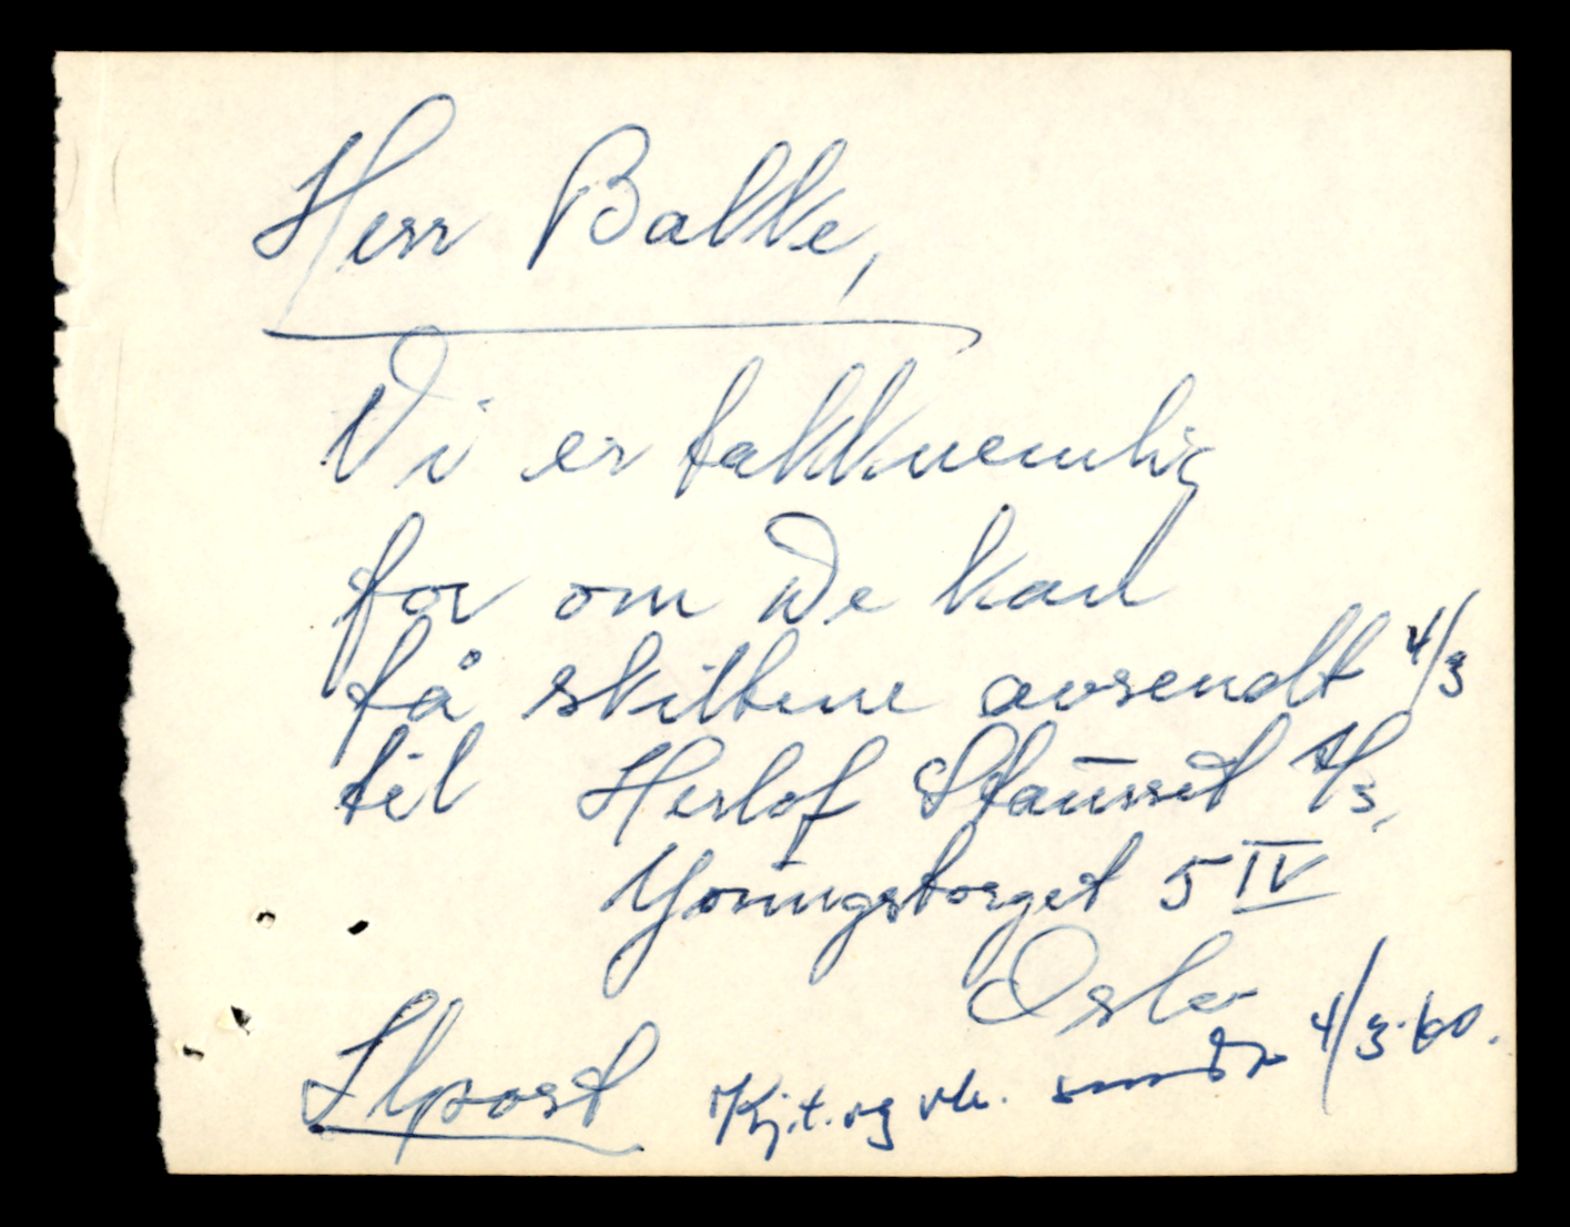 Herr Bakke,
Vi er takknemlig
for om De kan
få skiltene avsendt 4/3
til Herlof Staurset A/S,
Youngstorget 5 IV
Oslo
Ilpost Kj.t. og vk. sendt 4/3-60.